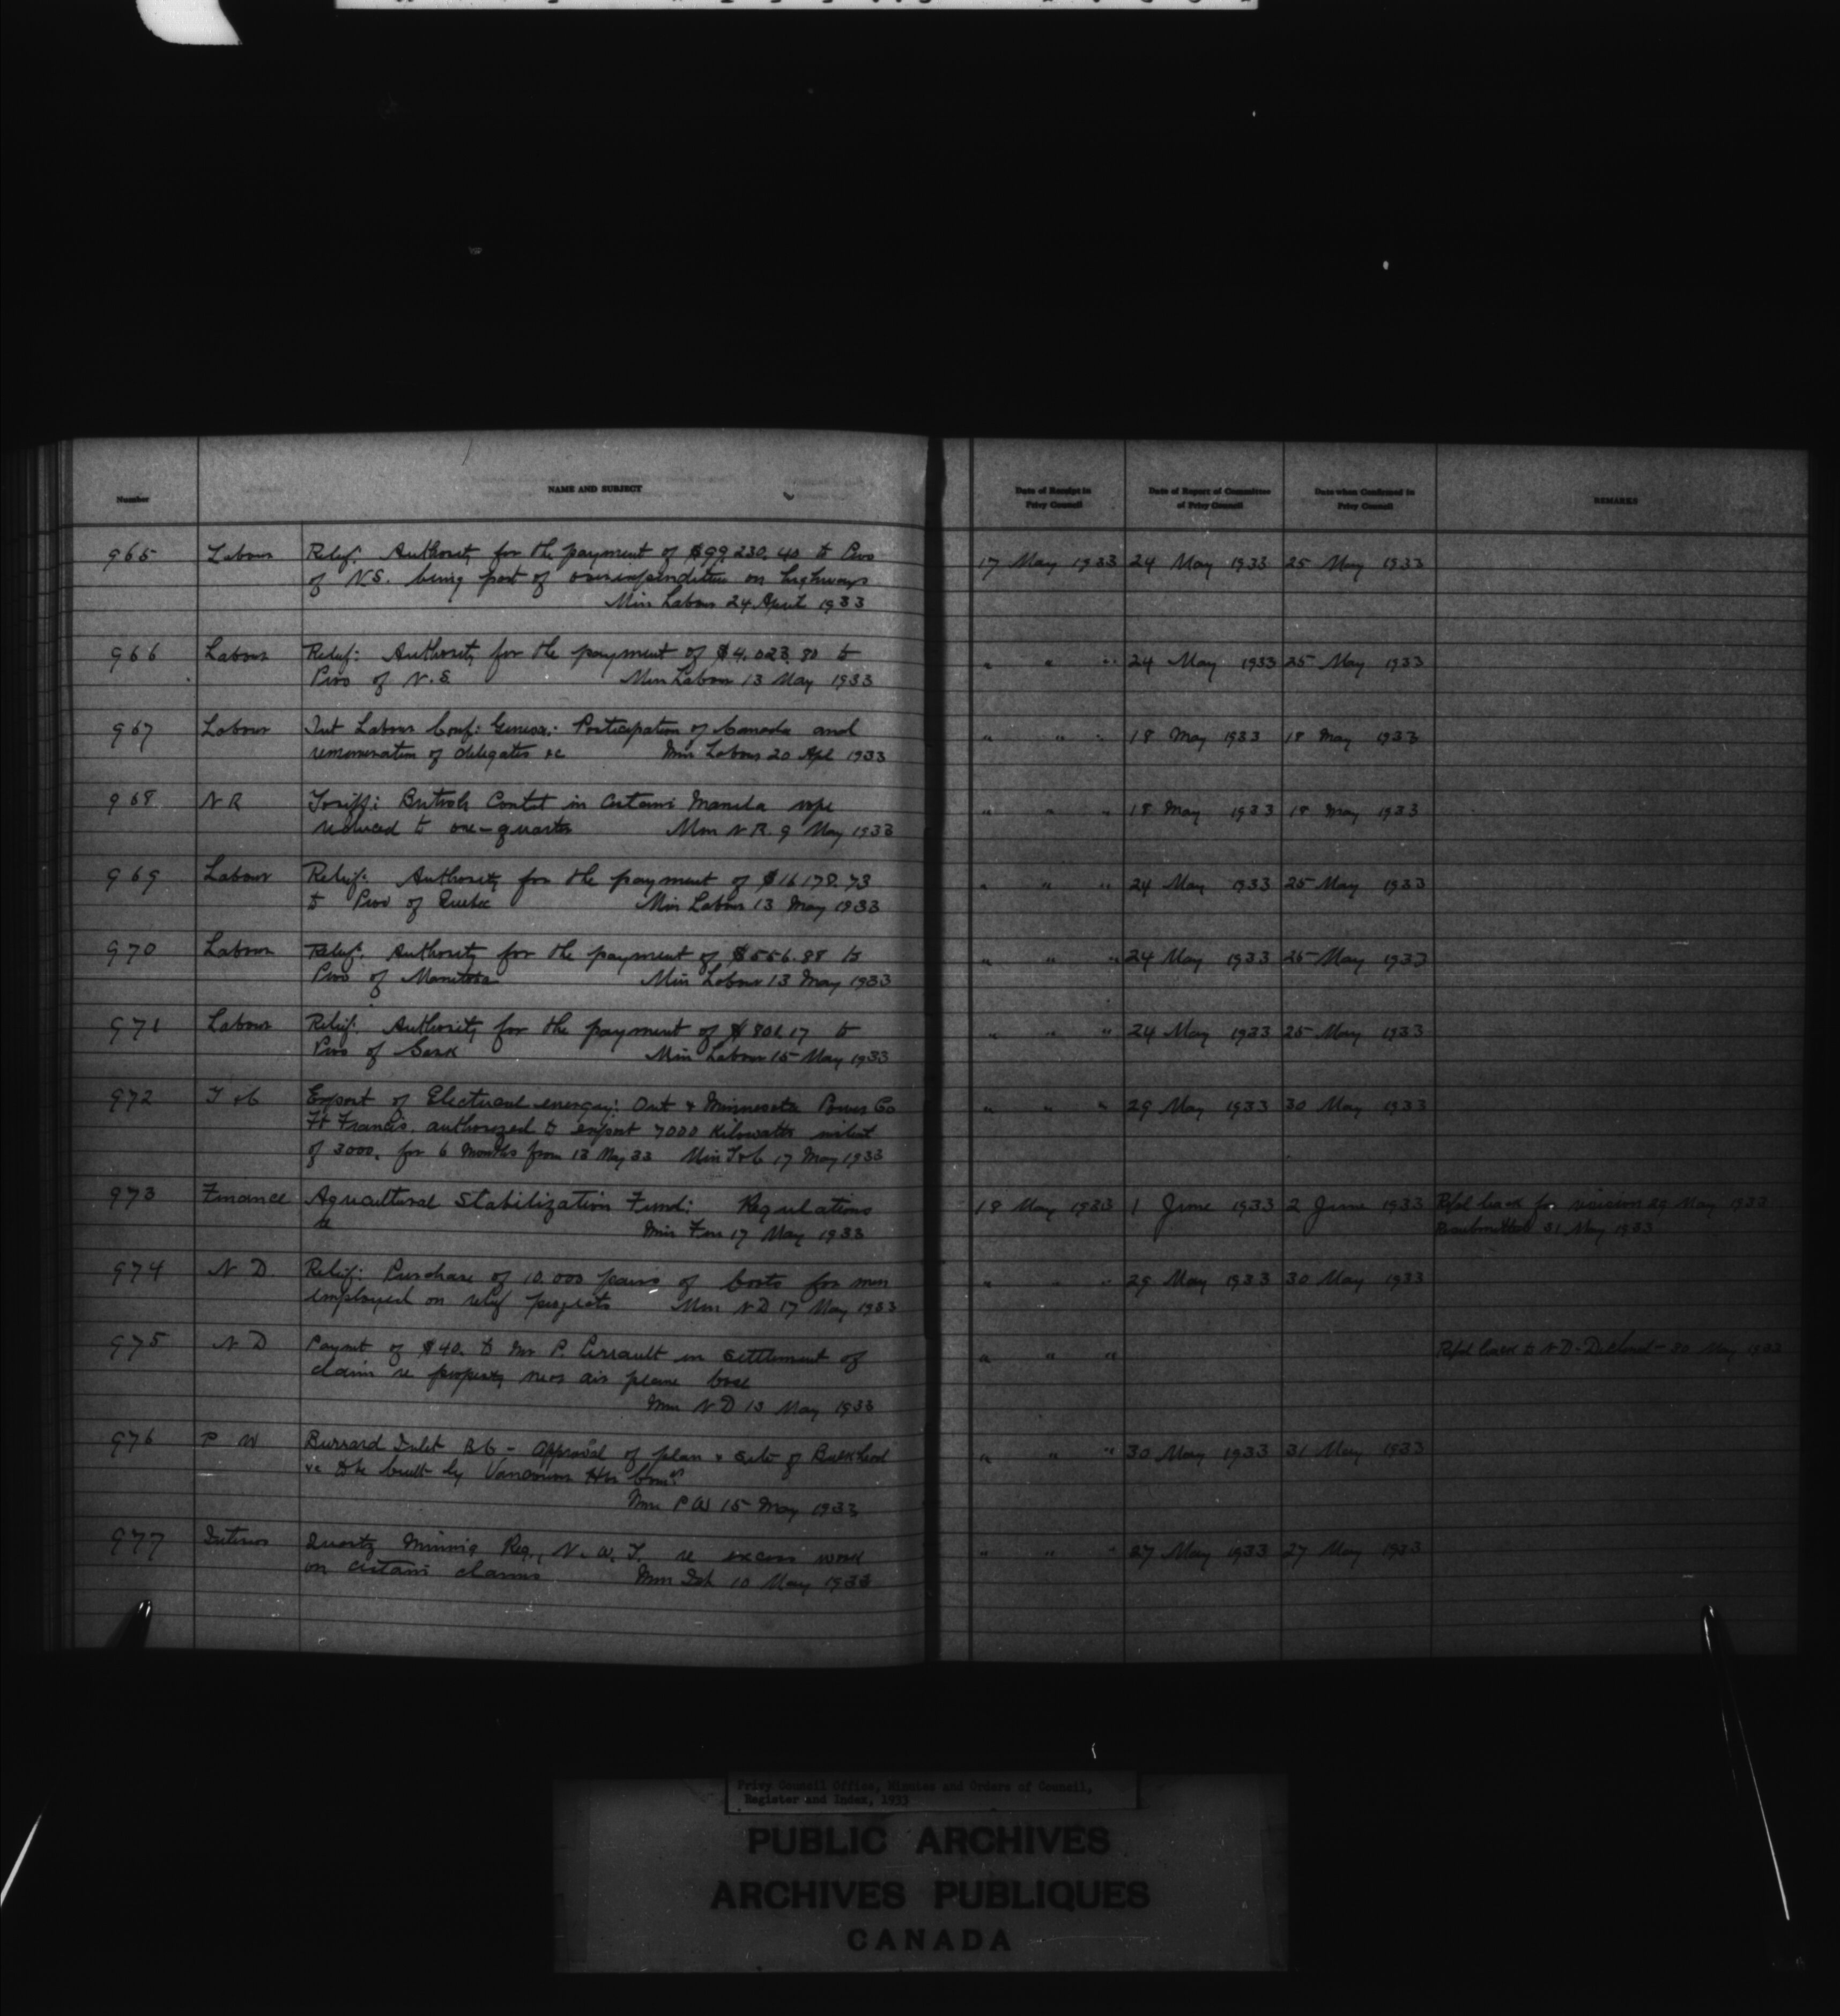 Number
NAME AND SUBJECT
Date of Receipt in Privy Council
Date of Report of Committee of Privy Council
Date when Confirmed in Privy Council
REMARKS
965 Labour Relief: Authority for the payment of $99,230.40 to Prov 17 May 1933 24 May 1933 25 May 1933
of N.S. being part of overexpenditure on highways
Min Labour 24 April 1933
966 Labour Relief: Authority for the payment of $4,023.80 to " " " 24 May 1933 25 May 1933
Prov of N.S Min Labour 13 May 1933
967 Labour Int Labour Conf: Geneva: Participation of Canada and " " " 18 May 1933 18 May 1933
remuneration of delegates &c Min Labour 20 Apl 1933
968 N R Tariff: British Content in certain Manila rope " " " 18 May 1933 18 May 1933
reduced to one-quarter Min N R. 9 May 1933
969 Labour Relief: Authority for the payment of $16178.73 " " " 24 May 1933 25 May 1933
to Prov of Quebec Min Labour 13 May 1933
970 Labour Relief: Authority for the payment of $556.88 to " " " 24 May 1933 25 May 1933
Prov of Manitoba Min Labour 13 May 1933
971 Labour Relief: Authority for the payment of $801.17 to " " " 24 May 1933 25 May 1933
Prov of Sask Min Labour 15 May 1933
972 T & C Export of Electrical energy: Ont & Minnesota Power Co " " " 29 May 1933 30 May 1933
Ft Francis. authorized to export 7000 Kilowatts instead
of 3000. for 6 months from 13 May 33 Min T&C 17 May 1933
973 Finance Agricultural Stabilization Fund: Regulations 18 May 1933 1 June 1933 2 June 1933 Refd back for revision 29 May 1933
re Min Fin 17 May 1933 Resubmitted 31 May 1933
974 N D. Relief: Purchase of 10,000 pairs of boots for men " " " 29 May 1933 30 May 1933
employed on relief projects Min N D 17 May 1933
975 N D Paymt of $40. to Mr P. in settlement of " " " Refd back to N D. 30 May 1933
claim re property near air plane base
Min N D 13 May 1933
976 P W Burrard Inlet B C - Approval of plan & site of Bulkhead " " " 30 May 1933 31 May 1933
&c to be built by Vancouver Hbr Comrs
Min P W 15 May 1933
977 Interior Quartz Mining Reg, N. W. T. re excess work " " " 27 May 1933 27 May 1933
on certain claims Min Int 10 May 1933
Privy Council Office, Minutes and Orders of Council,
Register and Index, 1933
PUBLIC ARCHIVES
ARCHIVES PUBLIQUES
CANADA